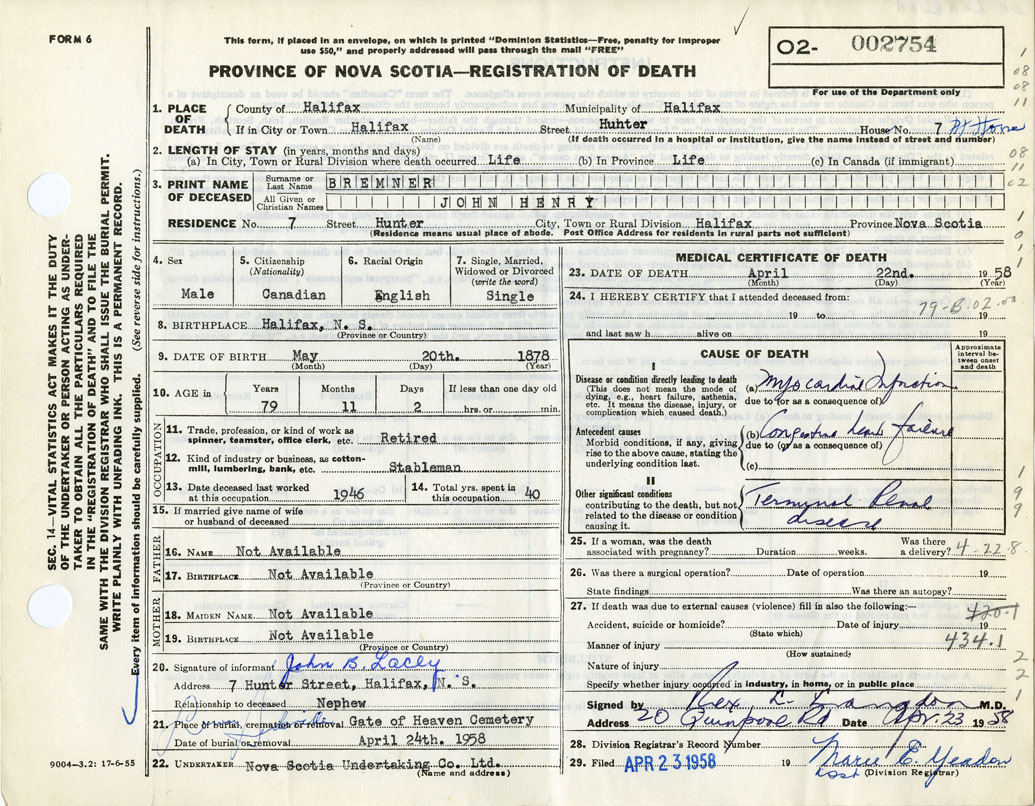 FORM 6
This form, if placed in an envelope, on which is printed "Dominion Statistics—Free, penalty for improper
use $50," and properly addressed will pass through the mail "FREE"
PROVINCE OF NOVA SCOTIA—REGISTRATION OF DEATH
O2- 002754
For use of the Department only
1. PLACE OF DEATH
County of Halifax Municipality of Halifax
If in City or Town Halifax Street Hunter House No. 7
(Name) (If death occurred in a hospital or institution, give the name instead of street and number)
2. LENGTH OF STAY (in years, months and days)
(a) In City, Town or Rural Division where death occurred Life (b) In Province Life (c) In Canada (if immigrant)
3. PRINT NAME OF DECEASED
Surname or Last Name BREMNER
All Given or Christian Names JOHN HENRY
RESIDENCE No. 7 Street Hunter City, Town or Rural Division Halifax Province Nova Scotia
(Residence means usual place of abode. Post Office Address for residents in rural parts not sufficient)
4. Sex
Male
5. Citizenship
(Nationality)
Canadian
6. Racial Origin
English
7. Single, Married,
Widowed or Divorced
(write the word)
Single
8. BIRTHPLACE Halifax, N. S.
(Province or Country)
9. DATE OF BIRTH May 20th. 1878
(Month) (Day) (Year)
10. AGE in
Years Months Days If less than one day old
79 11 2 hrs. or min.
OCCUPATION
11. Trade, profession, or kind of work as
spinner, teamster, office clerk, etc. Retired
12. Kind of industry or business, as cotton-
mill, lumbering, bank, etc. Stableman
13. Date deceased last worked
at this occupation 1946
14. Total yrs. spent in
this occupation 40
15. If married give name of wife
or husband of deceased
FATHER
16. NAME Not Available
17. BIRTHPLACE Not Available
(Province or Country)
MOTHER
18. MAIDEN NAME Not Available
19. BIRTHPLACE Not Available
(Province or Country)
20. Signature of informant John B. Lacey
Address 7 Hunter Street, Halifax, N. S.
Relationship to deceased Nephew
21. Place of burial, cremation or removal Gate of Heaven Cemetery
Date of burial or removal April 24th. 1958
22. UNDERTAKER Nova Scotia Undertaking Co. Ltd.
(Name and address)
MEDICAL CERTIFICATE OF DEATH
23. DATE OF DEATH April 22nd. 1958
(Month) (Day) (Year)
24. I HEREBY CERTIFY that I attended deceased from:
79-B.02.00
19 to 19
and last saw h alive on 19
CAUSE OF DEATH
Approximate
interval be-
tween onset
and death
I
Disease or condition directly leading to death
(This does not mean the mode of
dying, e.g., heart failure, asthenia,
etc. It means the disease, injury, or
complication which caused death.)
(a) Myocardial Infarction
due to (or as a consequence of)
Antecedent causes
Morbid conditions, if any, giving
rise to the above cause, stating the
underlying condition last.
(b) Congestive heart failure
due to (or as a consequence of)
(c)
II
Other significant conditions
contributing to the death, but not
related to the disease or condition
causing it.
Terminal Renal
disease
25. If a woman, was the death
associated with pregnancy? Duration weeks.
Was there
a delivery? 4-22-8
26. Was there a surgical operation? Date of operation 19
State findings Was there an autopsy?
27. If death was due to external causes (violence) fill in also the following:—
420.1
Accident, suicide or homicide? Date of injury 19
(State which)
434.1
Manner of injury
(How sustained)
Nature of injury
Specify whether injury occurred in industry, in home, or in public place
Signed by Rex E. Langdon M.D.
Address 20 Quinpool Rd Date Apr. 23 1958
28. Division Registrar's Record Number
29. Filed APR 23 1958 19 Marie E. Yeadon
(Division Registrar)
SEC. 14—VITAL STATISTICS ACT MAKES IT THE DUTY
OF THE UNDERTAKER OR PERSON ACTING AS UNDER-
TAKER TO OBTAIN ALL THE PARTICULARS REQUIRED
IN THE "REGISTRATION OF DEATH" AND TO FILE THE
SAME WITH THE DIVISION REGISTRAR WHO SHALL ISSUE THE BURIAL PERMIT.
WRITE PLAINLY WITH UNFADING INK. THIS IS A PERMANENT RECORD.
Every item of information should be carefully supplied. (See reverse side for instructions.)
9004—3.2: 17-6-55
1
08
08
11
08
11
02
1
0
1
1
9
9
2
2
1